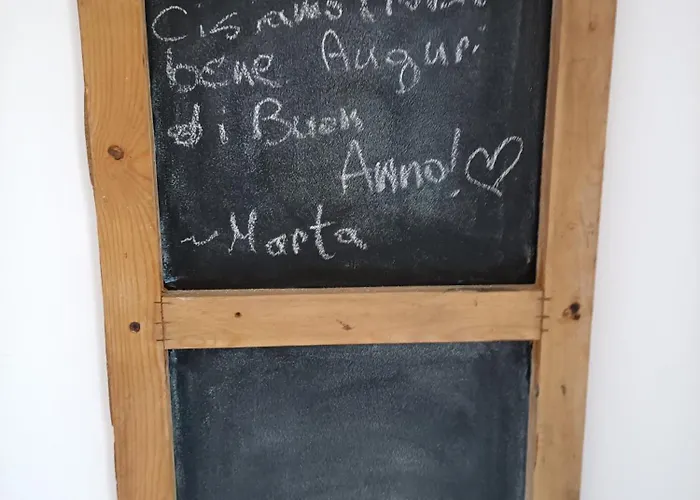 Ci siamo trovati
bene. Auguri
di Buon
Anno! ♡
~ Marta